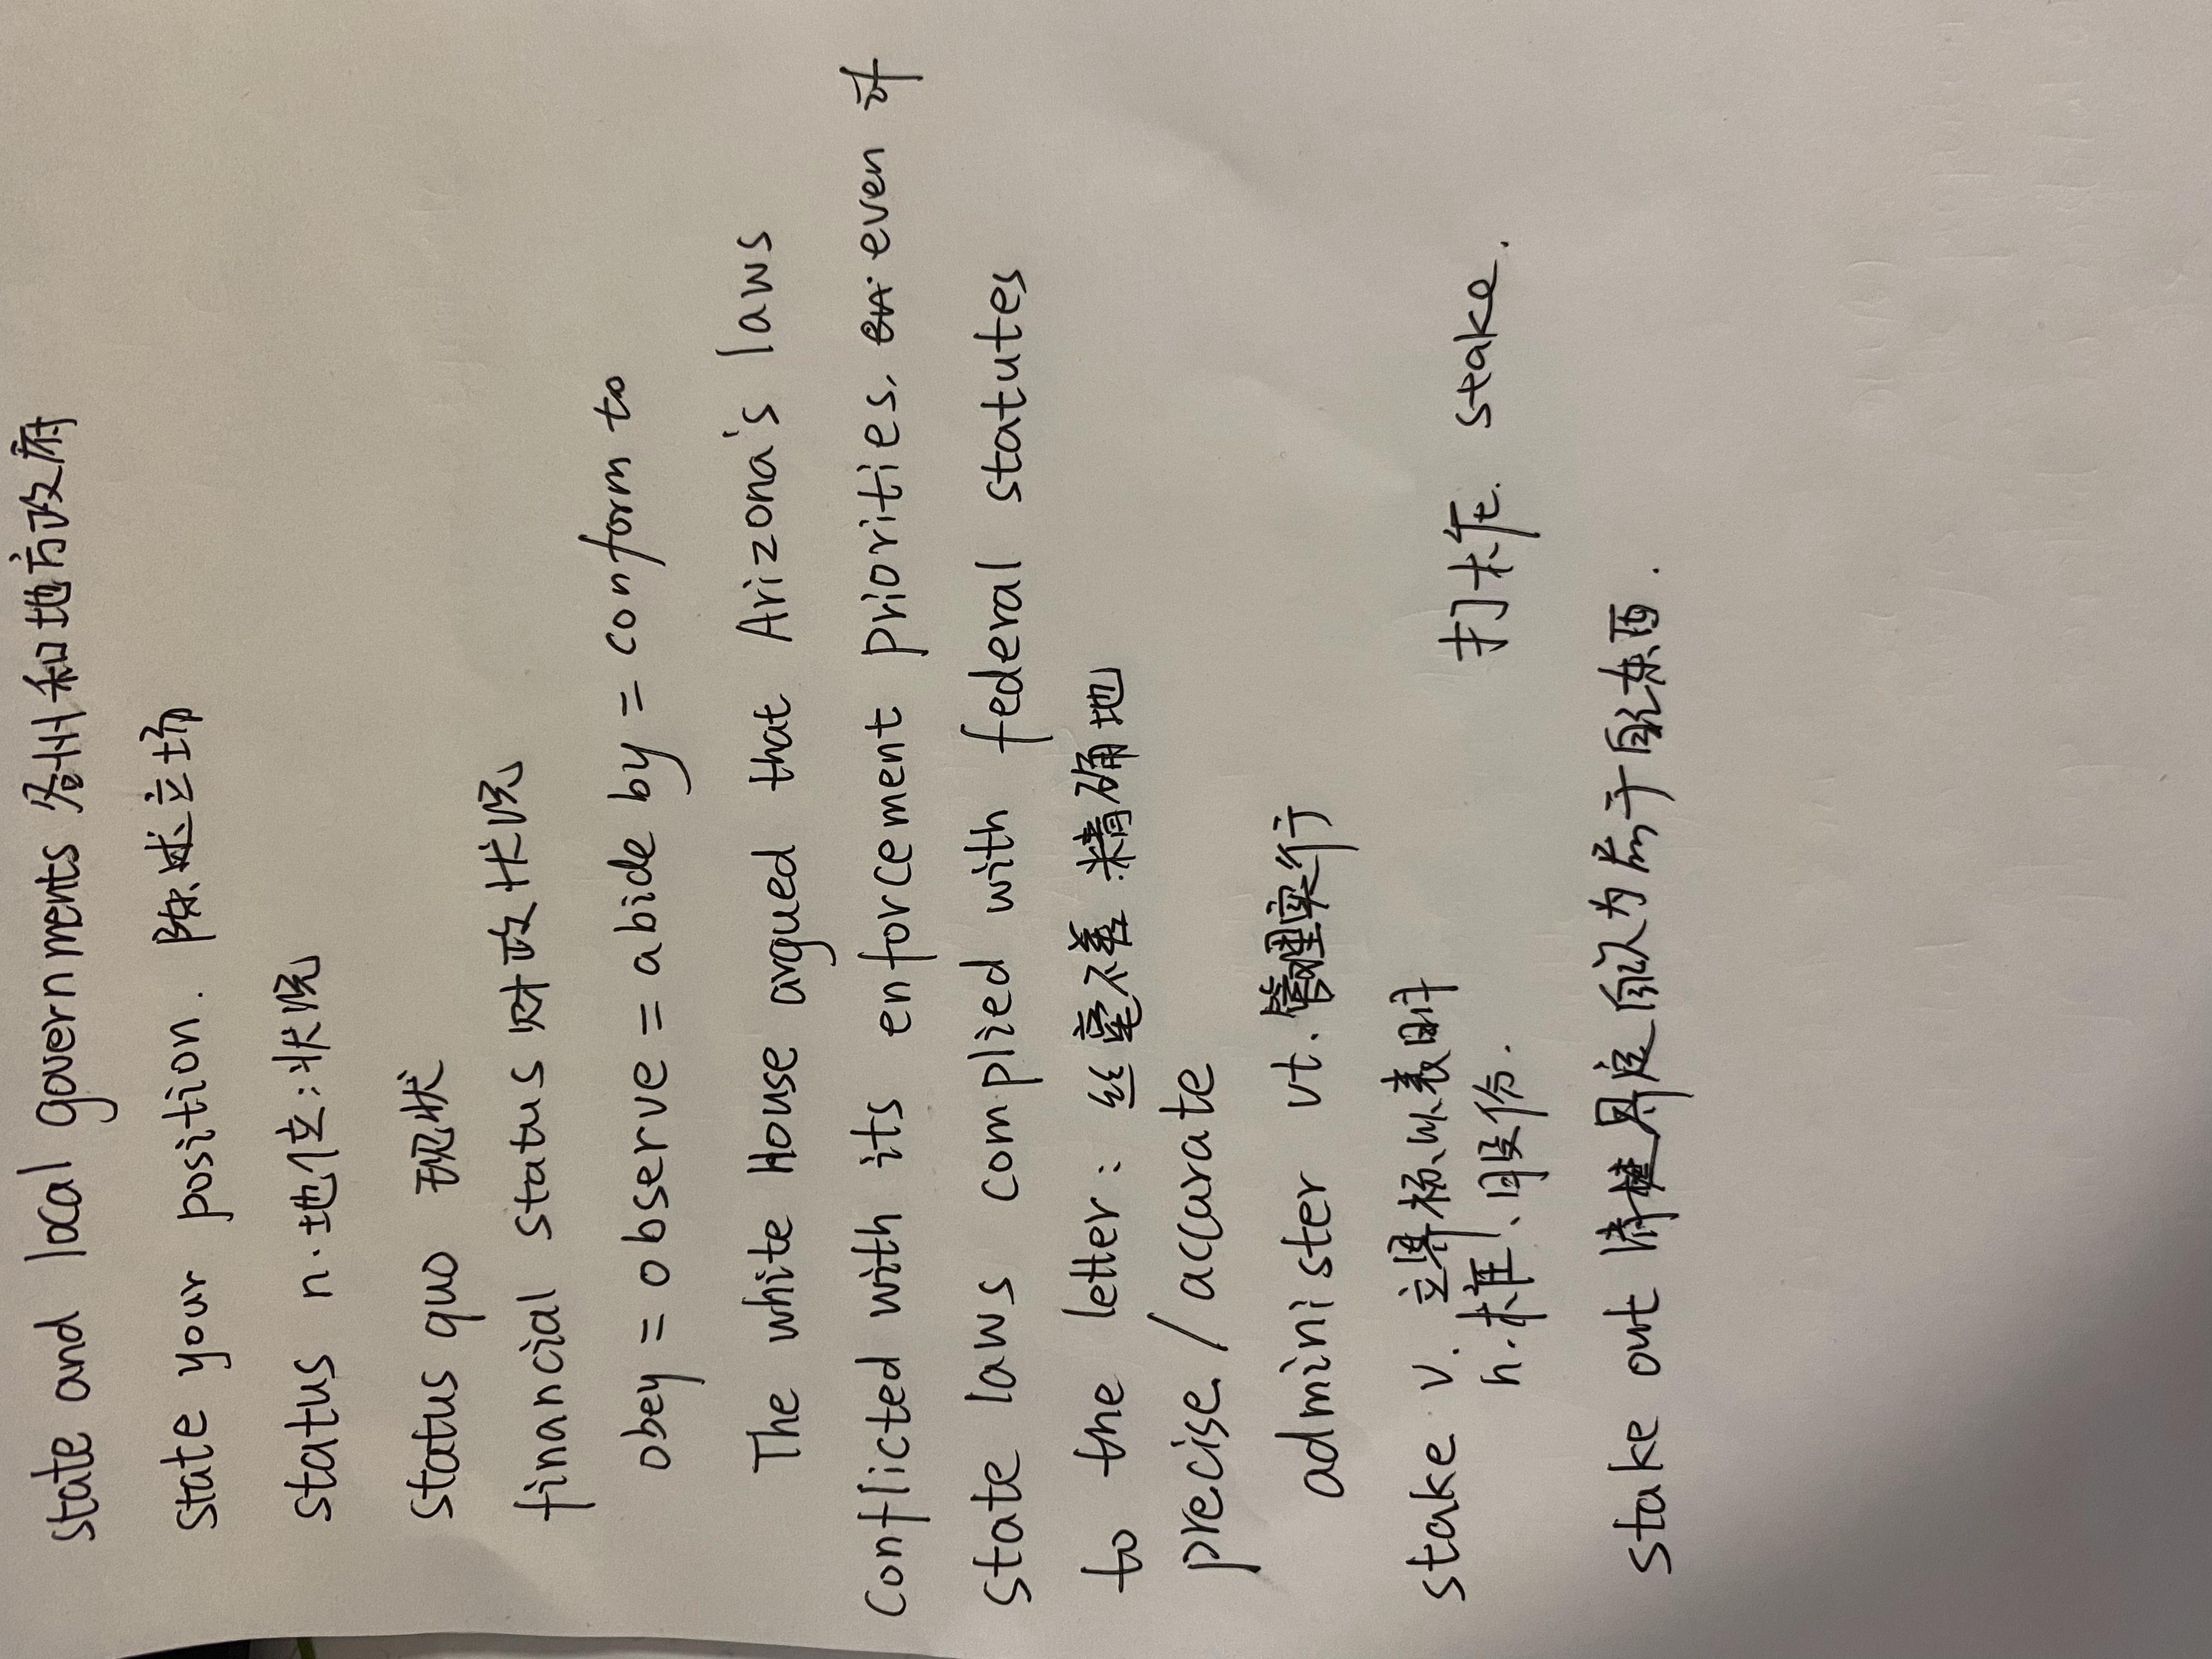 state and local governments 各州和地方政府
state your position. 陈述立场
status n.地位;状况
status quo 现状
financial status 财政状况
obey = observe = abide by = conform to
The white House argued that Arizona's laws
conflicted with its enforcement priorities, even if
state laws complied with federal statutes
to the letter: 丝毫不差 精确地
precise / accurate
administer vt. 管理实行
stake v. 立界标以表明
n. 桩、股份.
打桩 stake.
stake out 清楚界定自认为属于自己东西.